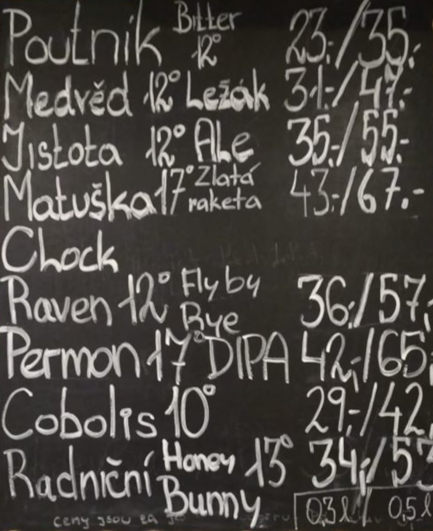 Poutník Bitter 12° 23,-/35,-
Medvěd 12° Ležák 31,-/47,-
Jistota 12° Ale 35,-/55,-
Matuška 17° Zlatá raketa 43,-/67,-
Chock
Raven 12° Fly by Rye 36,-/57,
Permon 17° DIPA 42,-/65,
Cobolis 10° 29,-/42,
Radniční Honey Bunny 13° 34,-/53
ceny jsou za 0,3 l / 0,5 l